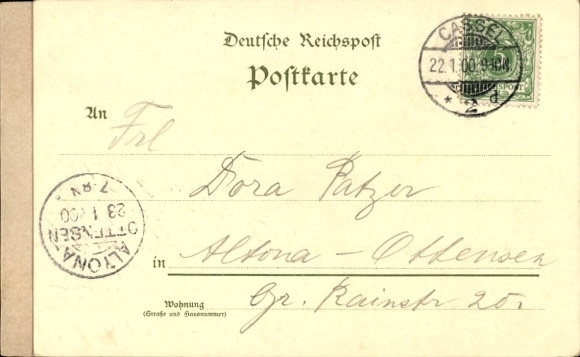 Deutsche Reichspost
Postkarte
CASSEL
22.1.00.9-10N
* 2 d
5
An Frl
Dora Patzer
in Altona - Ottensen
Wohnung
(Straße und Hausnummer)
Gr. Rainstr 20.
ALTONA-
OTTENSEN
23.1.00
7-8N